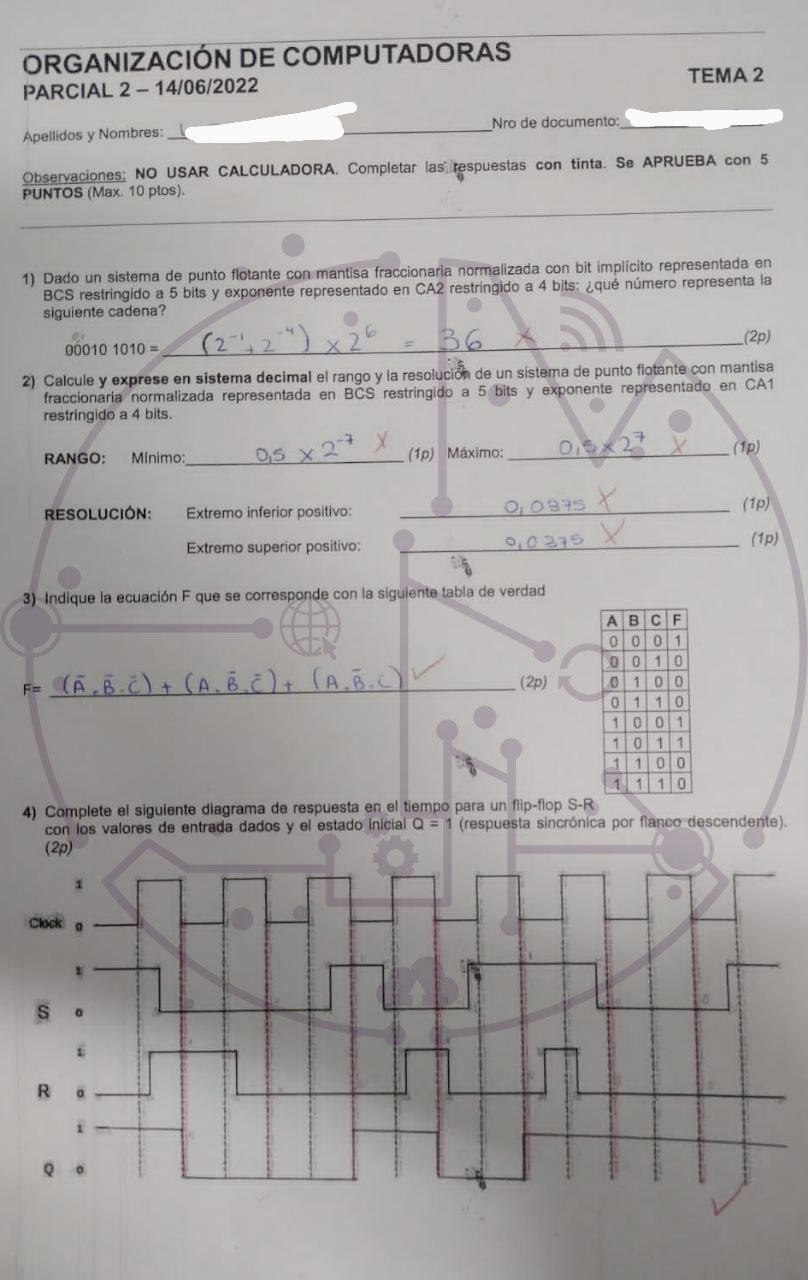 ORGANIZACIÓN DE COMPUTADORAS
PARCIAL 2 – 14/06/2022
TEMA 2
Apellidos y Nombres:
Nro de documento:
Observaciones: NO USAR CALCULADORA. Completar las respuestas con tinta. Se APRUEBA con 5
PUNTOS (Max. 10 ptos).
1) Dado un sistema de punto flotante con mantisa fraccionaria normalizada con bit implícito representada en
BCS restringido a 5 bits y exponente representado en CA2 restringido a 4 bits: ¿qué número representa la
siguiente cadena?
0,1
00010 1010 = (2⁻¹+2⁻⁴) × 2⁶ = 36 X (2p)
2) Calcule y exprese en sistema decimal el rango y la resolución de un sistema de punto flotante con mantisa
fraccionaria normalizada representada en BCS restringido a 5 bits y exponente representado en CA1
restringido a 4 bits.
RANGO: Mínimo: 0,5 x 2⁻⁷ X (1p) Máximo: 0,5x2⁷ X (1p)
RESOLUCIÓN: Extremo inferior positivo: 0,0375 X (1p)
Extremo superior positivo: 0,0375 X (1p)
3) Indique la ecuación F que se corresponde con la siguiente tabla de verdad
A B C F
0 0 0 1
0 0 1 0
0 1 0 0
0 1 1 0
1 0 0 1
1 0 1 1
1 1 0 0
1 1 1 0
F= (Ā.B̄.C̄) + (A.B̄.C̄) + (A.B̄.C) ✓ (2p)
4) Complete el siguiente diagrama de respuesta en el tiempo para un flip-flop S-R
con los valores de entrada dados y el estado inicial Q = 1 (respuesta sincrónica por flanco descendente).
(2p)
1
Clock 0
1
S 0
1
R 0
1
Q 0
✓